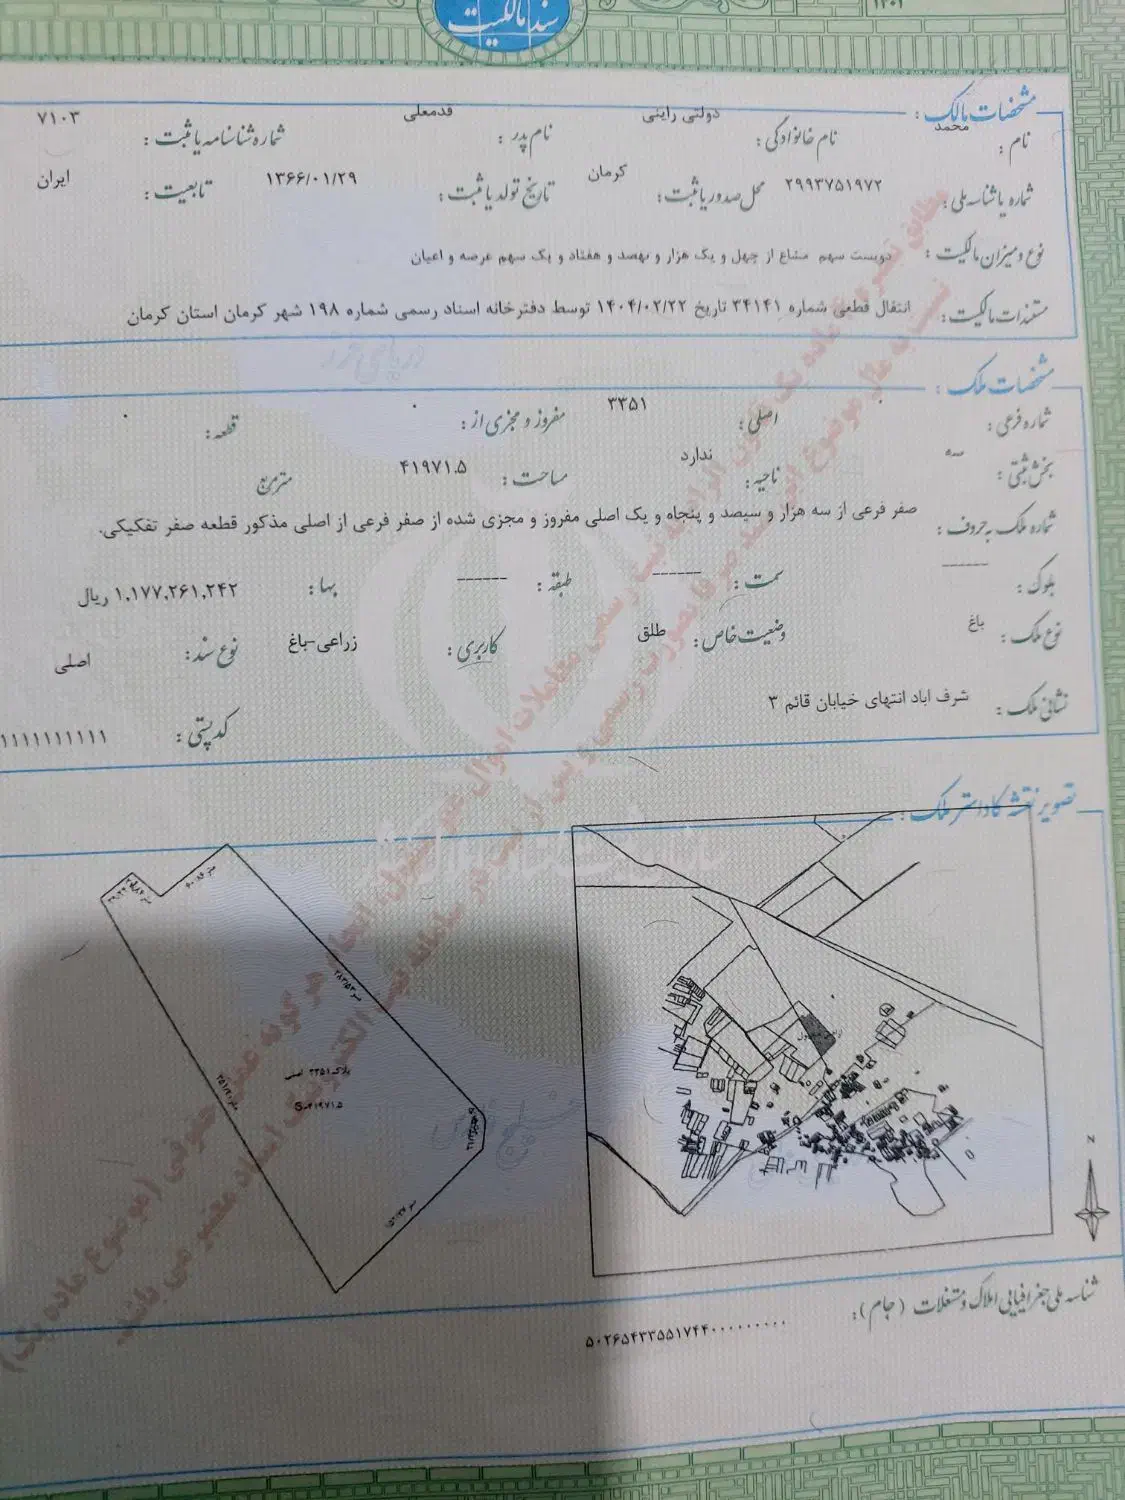 سند مالکیت
مشخصات مالک:
نام: محمد نام خانوادگی: دولتی راینی نام پدر: قدمعلی شماره شناسنامه یا ثبت: ۷۱۰۳
شماره یا شناسه ملی: ۲۹۹۳۷۵۱۹۷۲ محل صدور یا ثبت: کرمان تاریخ تولد یا ثبت: ۱۳۶۶/۰۱/۲۹ تابعیت: ایران
نوع و میزان مالکیت: دویست سهم مشاع از چهل و یک هزار و نهصد و هفتاد و یک سهم عرصه و اعیان
مستندات مالکیت: انتقال قطعی شماره ۳۴۱۴۱ تاریخ ۱۴۰۴/۰۲/۲۲ توسط دفترخانه اسناد رسمی شماره ۱۹۸ شهر کرمان استان کرمان
مشخصات ملک:
شماره فرعی: ۰ اصلی: ۳۳۵۱ مفروز و مجزی از: ۰ قطعه: ۰
بخش ثبتی: سه ناحیه: ندارد مساحت: ۴۱۹۷۱.۵ مترمربع
شماره ملک به حروف: صفر فرعی از سه هزار و سیصد و پنجاه و یک اصلی مفروز و مجزی شده از صفر فرعی از اصلی مذکور قطعه صفر تفکیکی.
بلوک: ------ سمت: ------ طبقه: ------ بها: ۱,۱۷۷,۲۶۱,۲۴۲ ریال
نوع ملک: باغ وضعیت خاص: طلق کاربری: زراعی-باغ نوع سند: اصلی
نشانی ملک: شرف اباد انتهای خیابان قائم ۳
کد پستی: ۱۱۱۱۱۱۱۱۱۱
تصویر نقشه کاداستر ملک:
پلاک ۳۳۵۱ اصلی
S=۴۱۹۷۱.۵
N
شناسه ملی جغرافیایی املاک و مستغلات (جام):
۵۰۲۶۵۴۳۳۵۵۱۷۴۴۰۰۰۰۰۰۰۰۰